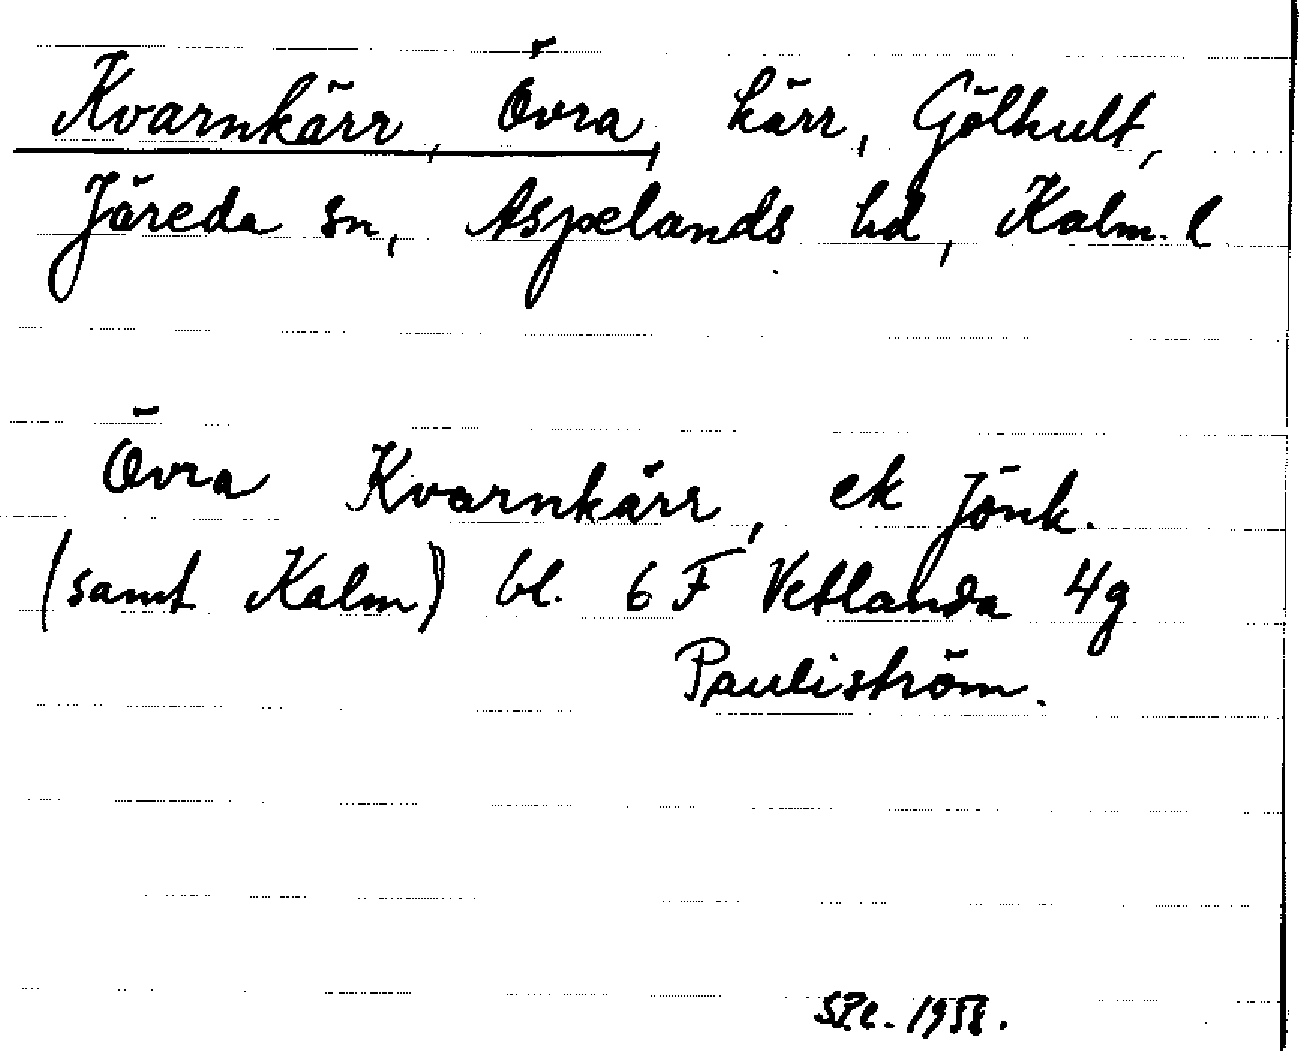 Kvarnkärr, Övra, kärr, Gölhult,
Järeda sn, Aspelands hd, Kalm. l
Övra Kvarnkärr, ek Jönk.
(samt Kalm) bl. 6 F Vetlanda 4g
Pauliström.
1958.